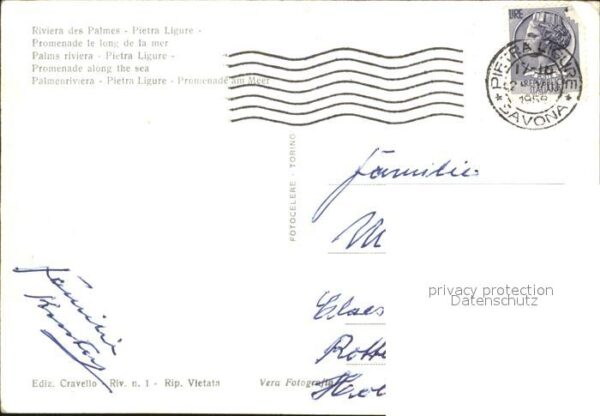 Riviera des Palmes - Pietra Ligure -
Promenade le long de la mer
Palms riviera - Pietra Ligure -
Promenade along the sea
Palmenriviera - Pietra Ligure - Promenade am Meer
LIRE
PIETRA LIGURE
SAVONA
FOTOCELERE - TORINO
Familie
M
privacy protection
Datenschutz
Rotte
Familie
Ediz. Cravello - Riv. n. 1 - Rip. Vietata
Vera Fotografia